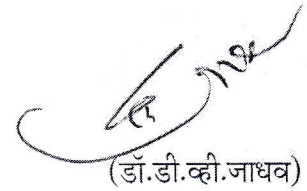 (डॉ.डी.व्ही.जाधव)